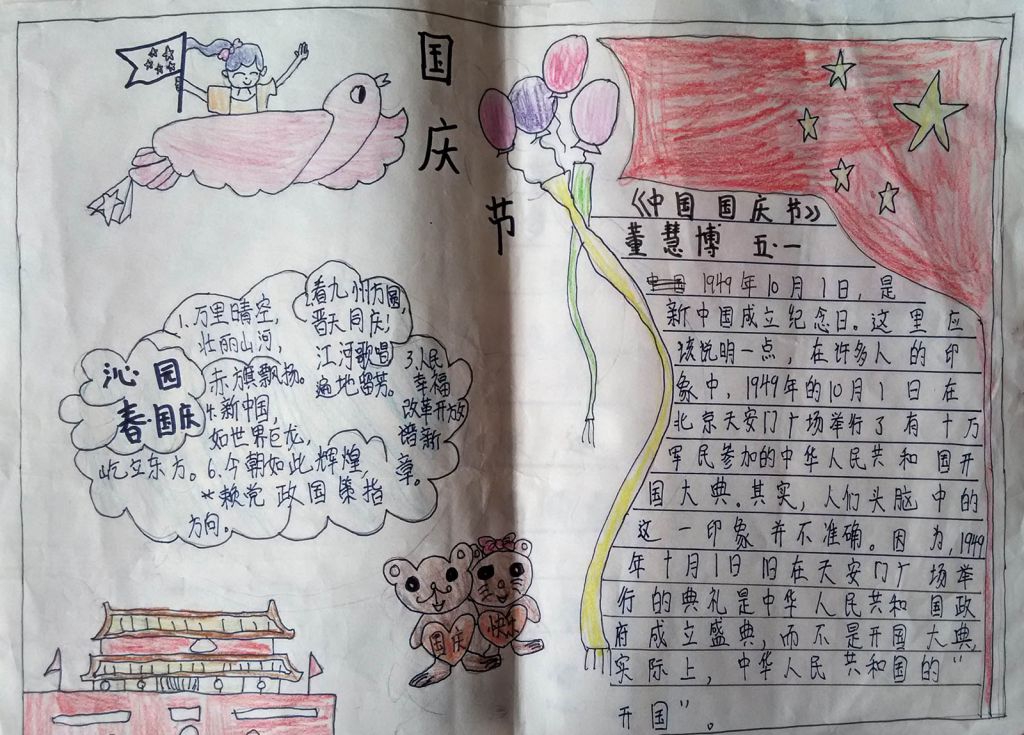 国
庆
节
沁园
春·国庆
1.万里晴空,
壮丽山河,
赤旗飘扬。
2.看九州方圆,
普天同庆!
江河歌唱
遍地留芳。
3.人民
幸福
改革开放
谱新
章。
4.新中国,
如世界巨龙,
屹立东方。6.今朝如此辉煌,
*赖党政国策指
方向。
国庆
快乐
《中国国庆节》
董慧博 五·一
1949年10月1日,是
新中国成立纪念日。这里应
该说明一点,在许多人的印
象中,1949年的10月1日在
北京天安门广场举行了有十万
军民参加的中华人民共和国开
国大典。其实,人们头脑中的
这一印象并不准确。因为,1949
年十月1日旧在天安门广场举
行的典礼是中华人民共和国政
府成立盛典,而不是开国大典,
实际上,中华人民共和国的“
开国”。